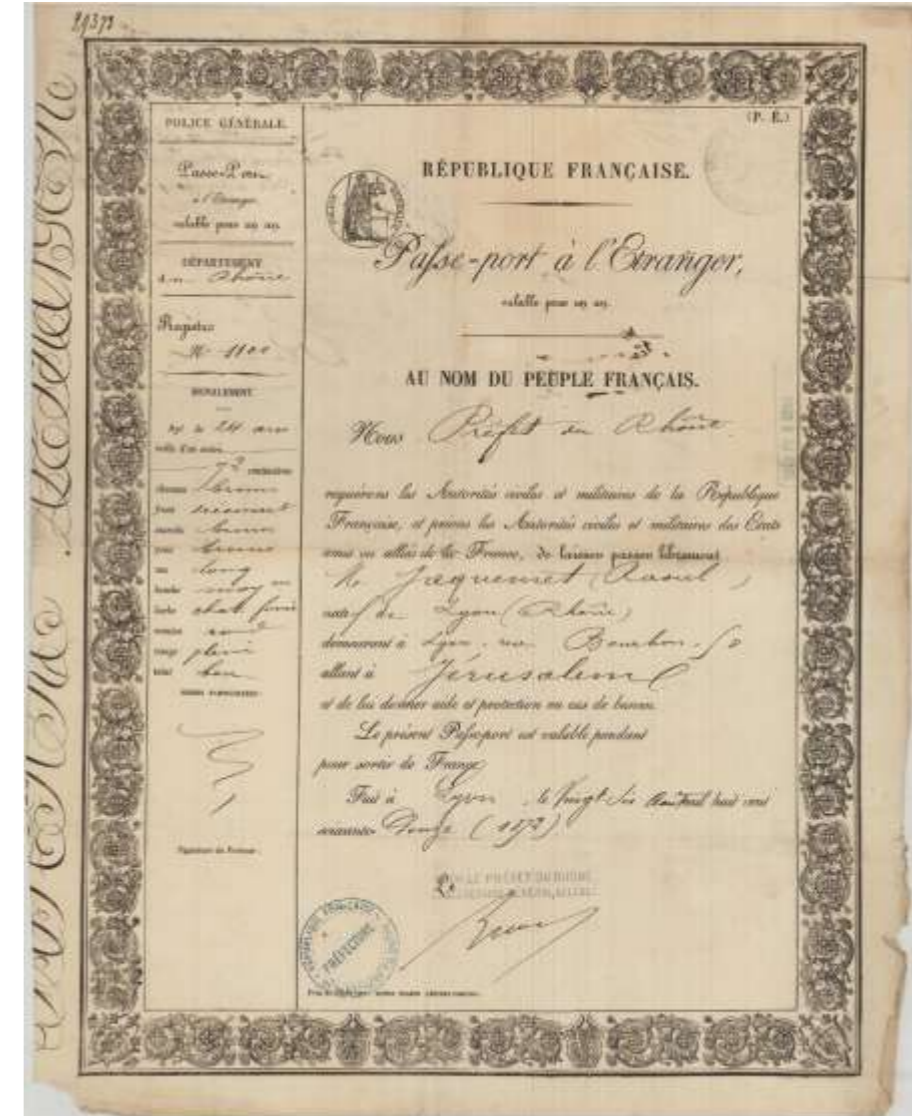 29373
POLICE GÉNÉRALE.
Passe-Port
à l'Etranger
valable pour un an.
DÉPARTEMENT
du Rhône
Registre
N° 1100
SIGNALEMENT
âgé de 24 ans
taille d'un mètre
72 centimètres
cheveux bruns
front
sourcils bruns
yeux bruns
nez long
bouche moy
barbe chat.
menton rond
visage plein
teint
SIGNES PARTICULIERS:
Signature du Porteur.
(P. E.)
RÉPUBLIQUE FRANÇAISE.
Passe-port à l'Etranger,
valable pour un an.
AU NOM DU PEUPLE FRANÇAIS.
Nous Préfet du Rhône
requérons les Autorités civiles et militaires de la République
Française, et prions les Autorités civiles et militaires des Etats
amis ou alliés de la France, de laisser passer librement
M. Jacquemet (Raoul)
natif de Lyon (Rhône)
demeurant à Lyon, rue Bourbon, 50
allant à Jérusalem
et de lui donner aide et protection en cas de besoin.
Le présent Passe-port est valable pendant
pour sortir de France
Fait à Lyon, le Vingt Six Août mil huit cent
soixante Douze (1872)
LE PRÉFET DU RHÔNE
RÉPUBLIQUE FRANÇAISE
PRÉFECTURE